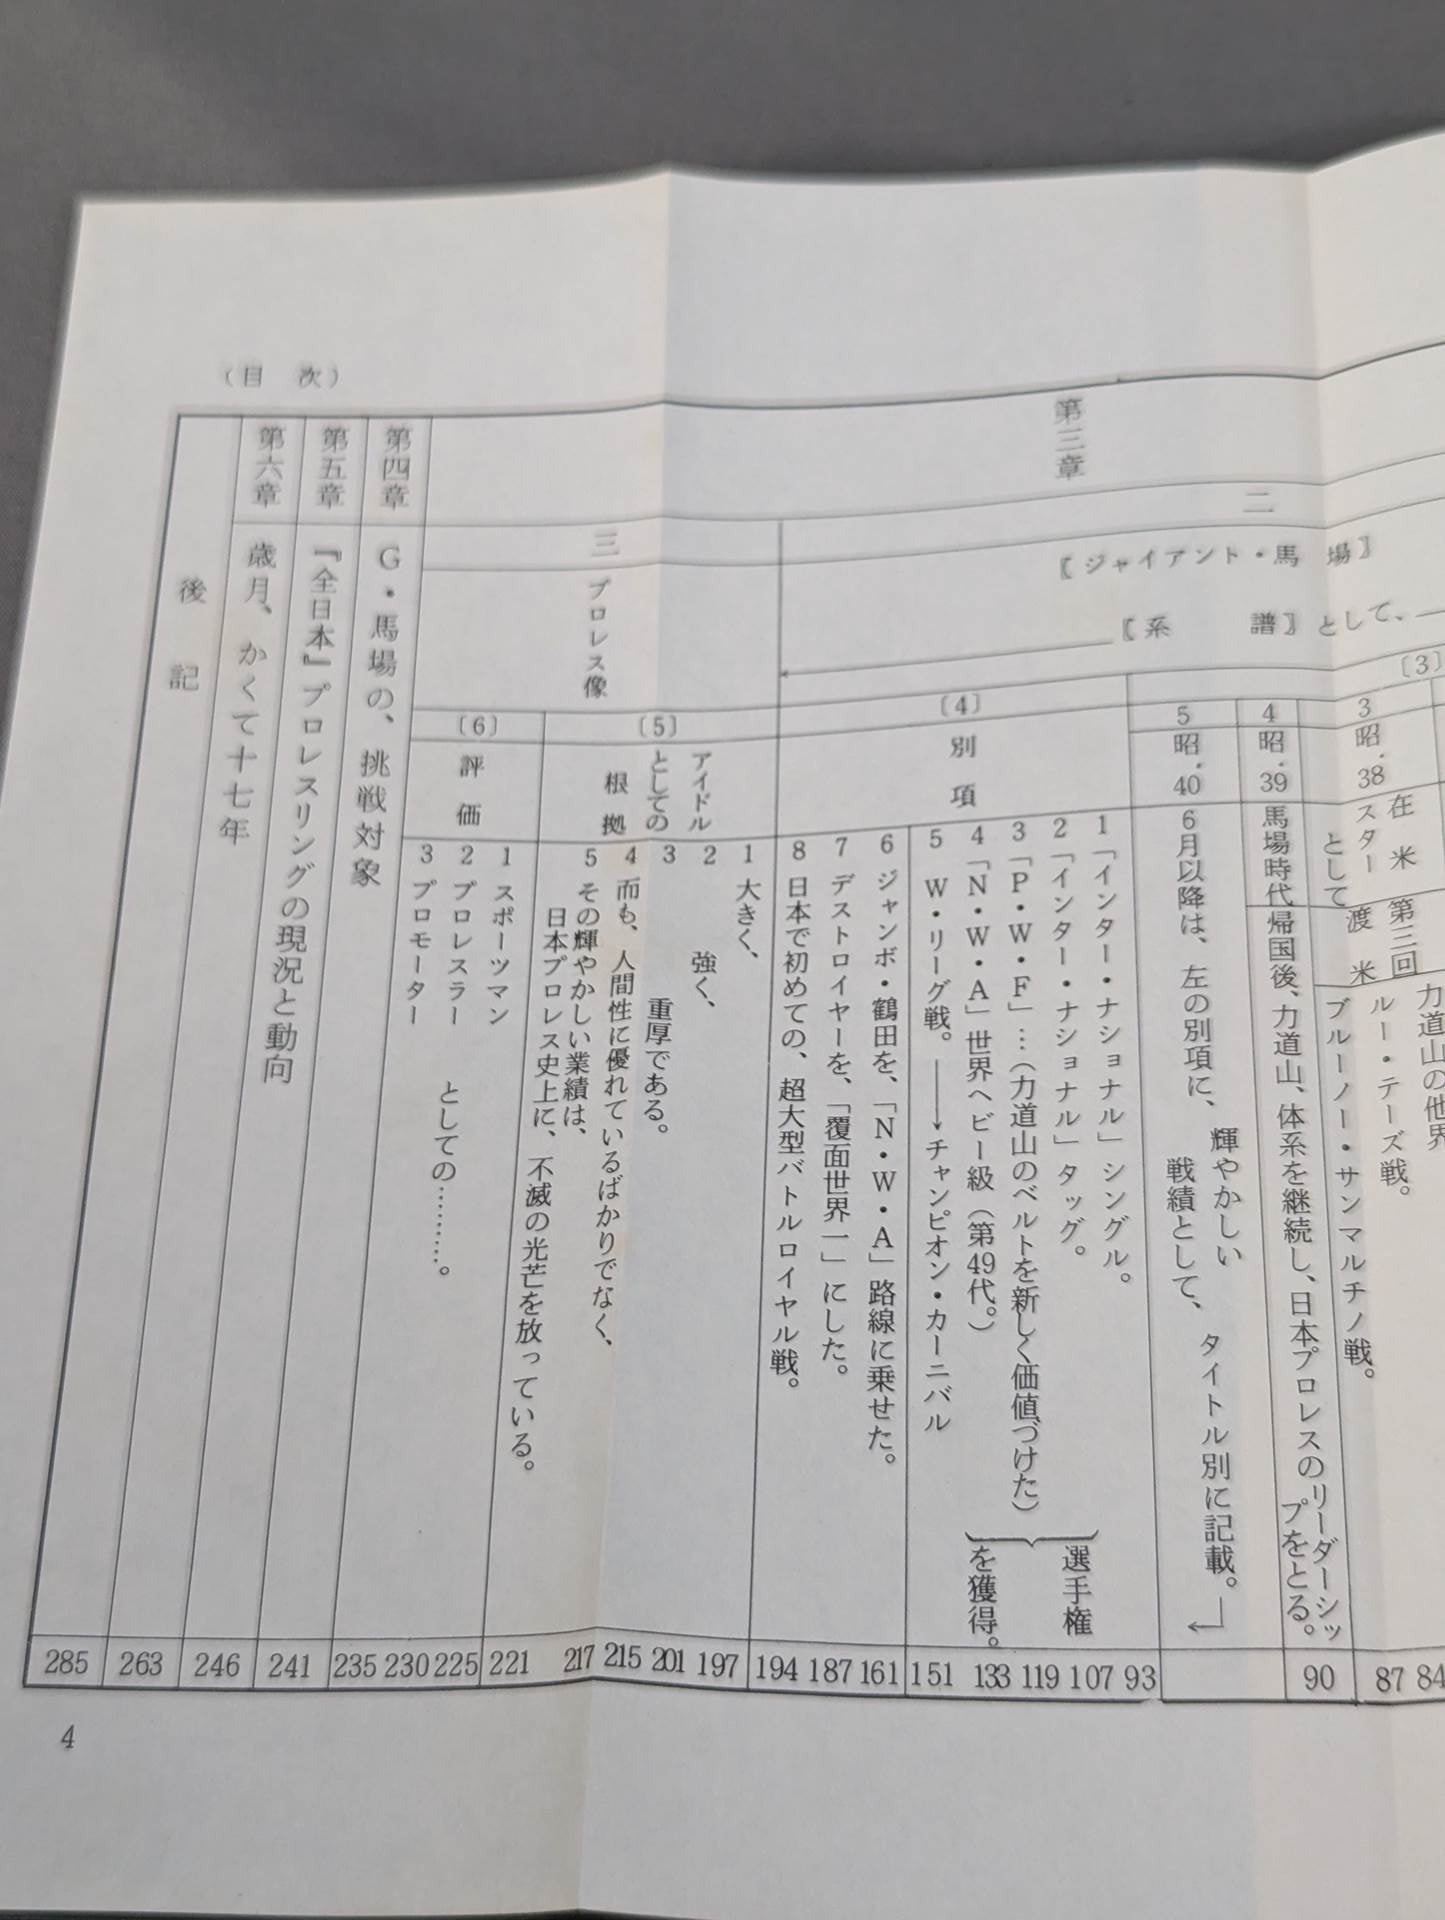 （目　次）
第三章
二
〖ジャイアント・馬場〗
〖系　譜〗として、
〔3〕
力道山の他界
3
昭・38
在米
スター
として
第三回
渡米
ルー・テーズ戦。
ブルーノー・サンマルチノ戦。
84
87
4
昭・39
馬場時代
帰国後、力道山、体系を継続し、日本プロレスのリーダーシップをとる。
90
5
昭・40
6月以降は、左の別項に、輝やかしい
戦績として、タイトル別に記載。
〔4〕
別項
1「インター・ナショナル」シングル。
2「インター・ナショナル」タッグ。
3「P・W・F」…（力道山のベルトを新しく価値づけた）
4「N・W・A」世界ヘビー級（第49代。）
選手権
を獲得。
5 W・リーグ戦。→チャンピオン・カーニバル
6 ジャンボ・鶴田を、「N・W・A」路線に乗せた。
7 デストロイヤーを、「覆面世界一」にした。
8 日本で初めての、超大型バトルロイヤル戦。
93
107
119
133
151
161
187
194
三
プロレス像
〔5〕
アイドル
としての
根拠
1 大きく、
2 強く、
3 重厚である。
4 而も、人間性に優れているばかりでなく、
5 その輝やかしい業績は、
日本プロレス史上に、不滅の光芒を放っている。
197
201
215
217
〔6〕
評価
1 スポーツマン
2 プロレスラー
3 プロモーター
としての………。
221
225
230
第四章
G・馬場の、挑戦対象
235
第五章
『全日本』プロレスリングの現況と動向
241
第六章
歳月、かくて十七年
246
後記
263
285
4